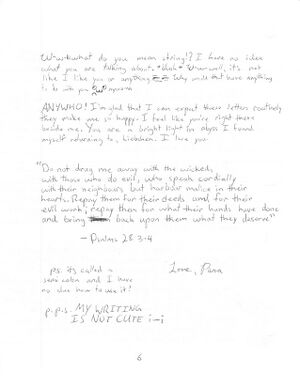 what do you mean string!? I have no idea
what you are talking about. What? well, it's not
like I like you or anything Why would that have anything
to do with you
ANYWHO! I'm glad that I can expect these letters routinely
they make me so happy. I feel like you're right there
beside me. You are a bright light in abyss I found
myself returning to, I love you
"Do not drag me away with the wicked,
with those who do evil, who speak cordially
with their neighbours but harbour malice in their
hearts. Repay them for their deeds and for their
evil work; repay them for what their hands have done
and bring back upon them what they deserve"
- Psalms 28:3-4
p.s. it's called a
semi colon and I have
no clue how to use it!
Love,
p.p.s. MY WRITING
IS NOT CUTE ;-;
6